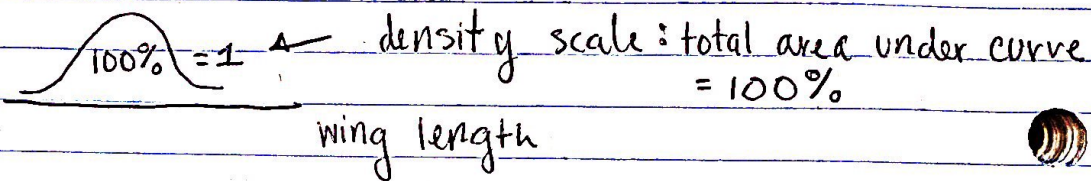 100% = 1 ← density scale: total area under curve
= 100%
wing length